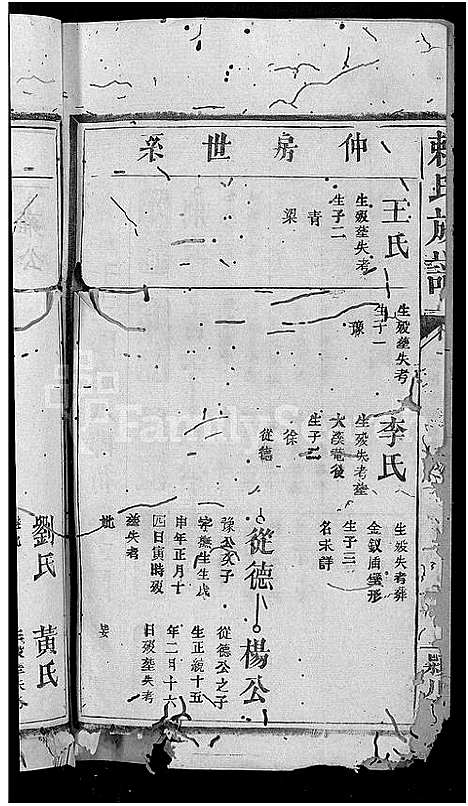 賴氏族譜
仲房世系
王氏
生歿塟失考
生子二
青
梁
生歿塟失考
生子一
豫
李氏
生歿失考塟
大溪菴後
生子二
徐
從德
生歿失考葬
金釵
形
生子三
名未詳
從德
豫公次子
字
生生戊
申年正月十
四日寅時歿
塟失考
妣
楊公
從德公之子
生正統十五
年二月十六
日歿塟失考
劉氏
黃氏